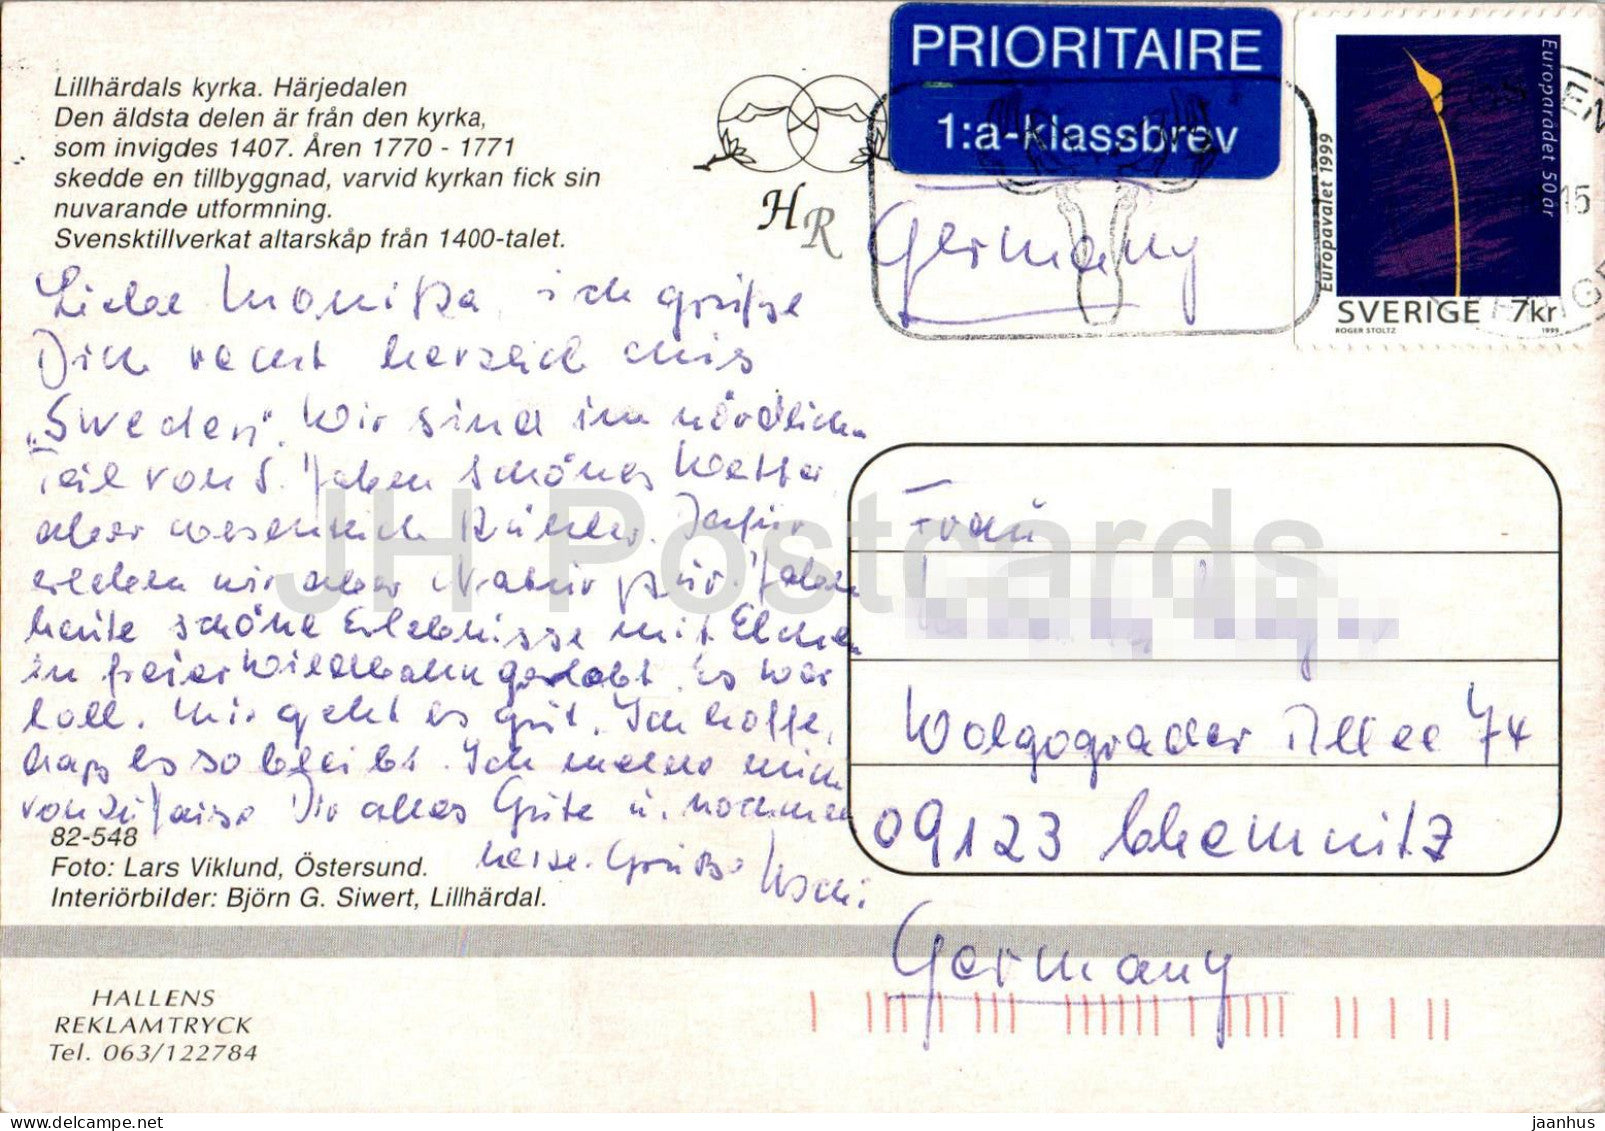 Lillhärdals kyrka. Härjedalen
Den äldsta delen är från den kyrka,
som invigdes 1407. Åren 1770 - 1771
skedde en tillbyggnad, varvid kyrkan fick sin
nuvarande utformning.
Svensktillverkat altarskåp från 1400-talet.
HR
PRIORITAIRE
1:a-klassbrev
Europavalet 1999
Europarådet 50 år
SVERIGE 7kr
ROGER STOLTZ 1999
Germany
Liebe Monika, ich grüße
Dich recht herzlich aus
"Sweden". Wir sind im nördlichen
Teil von S. Haben schönes Wetter
aber wesentlich kühler. Dafür
erleben wir aber Natur pur. Haben
heute schöne Erlebnisse mit Elchen
in freier Wildbahn gehabt. Es war
toll. Mir geht es gut. Ich hoffe,
daß es so bleibt. Ich melde mich
von zu Hause. Dir alles Gute u. nochmal
herzl. Grüße Uschi.
82-548
Foto: Lars Viklund, Östersund.
Interiörbilder: Björn G. Siwert, Lillhärdal.
HALLENS
REKLAMTRYCK
Tel. 063/122784
Frau
Wolgograder Allee 74
09123 Chemnitz
Germany
JH Postcards
www.delcampe.net
jaanhus